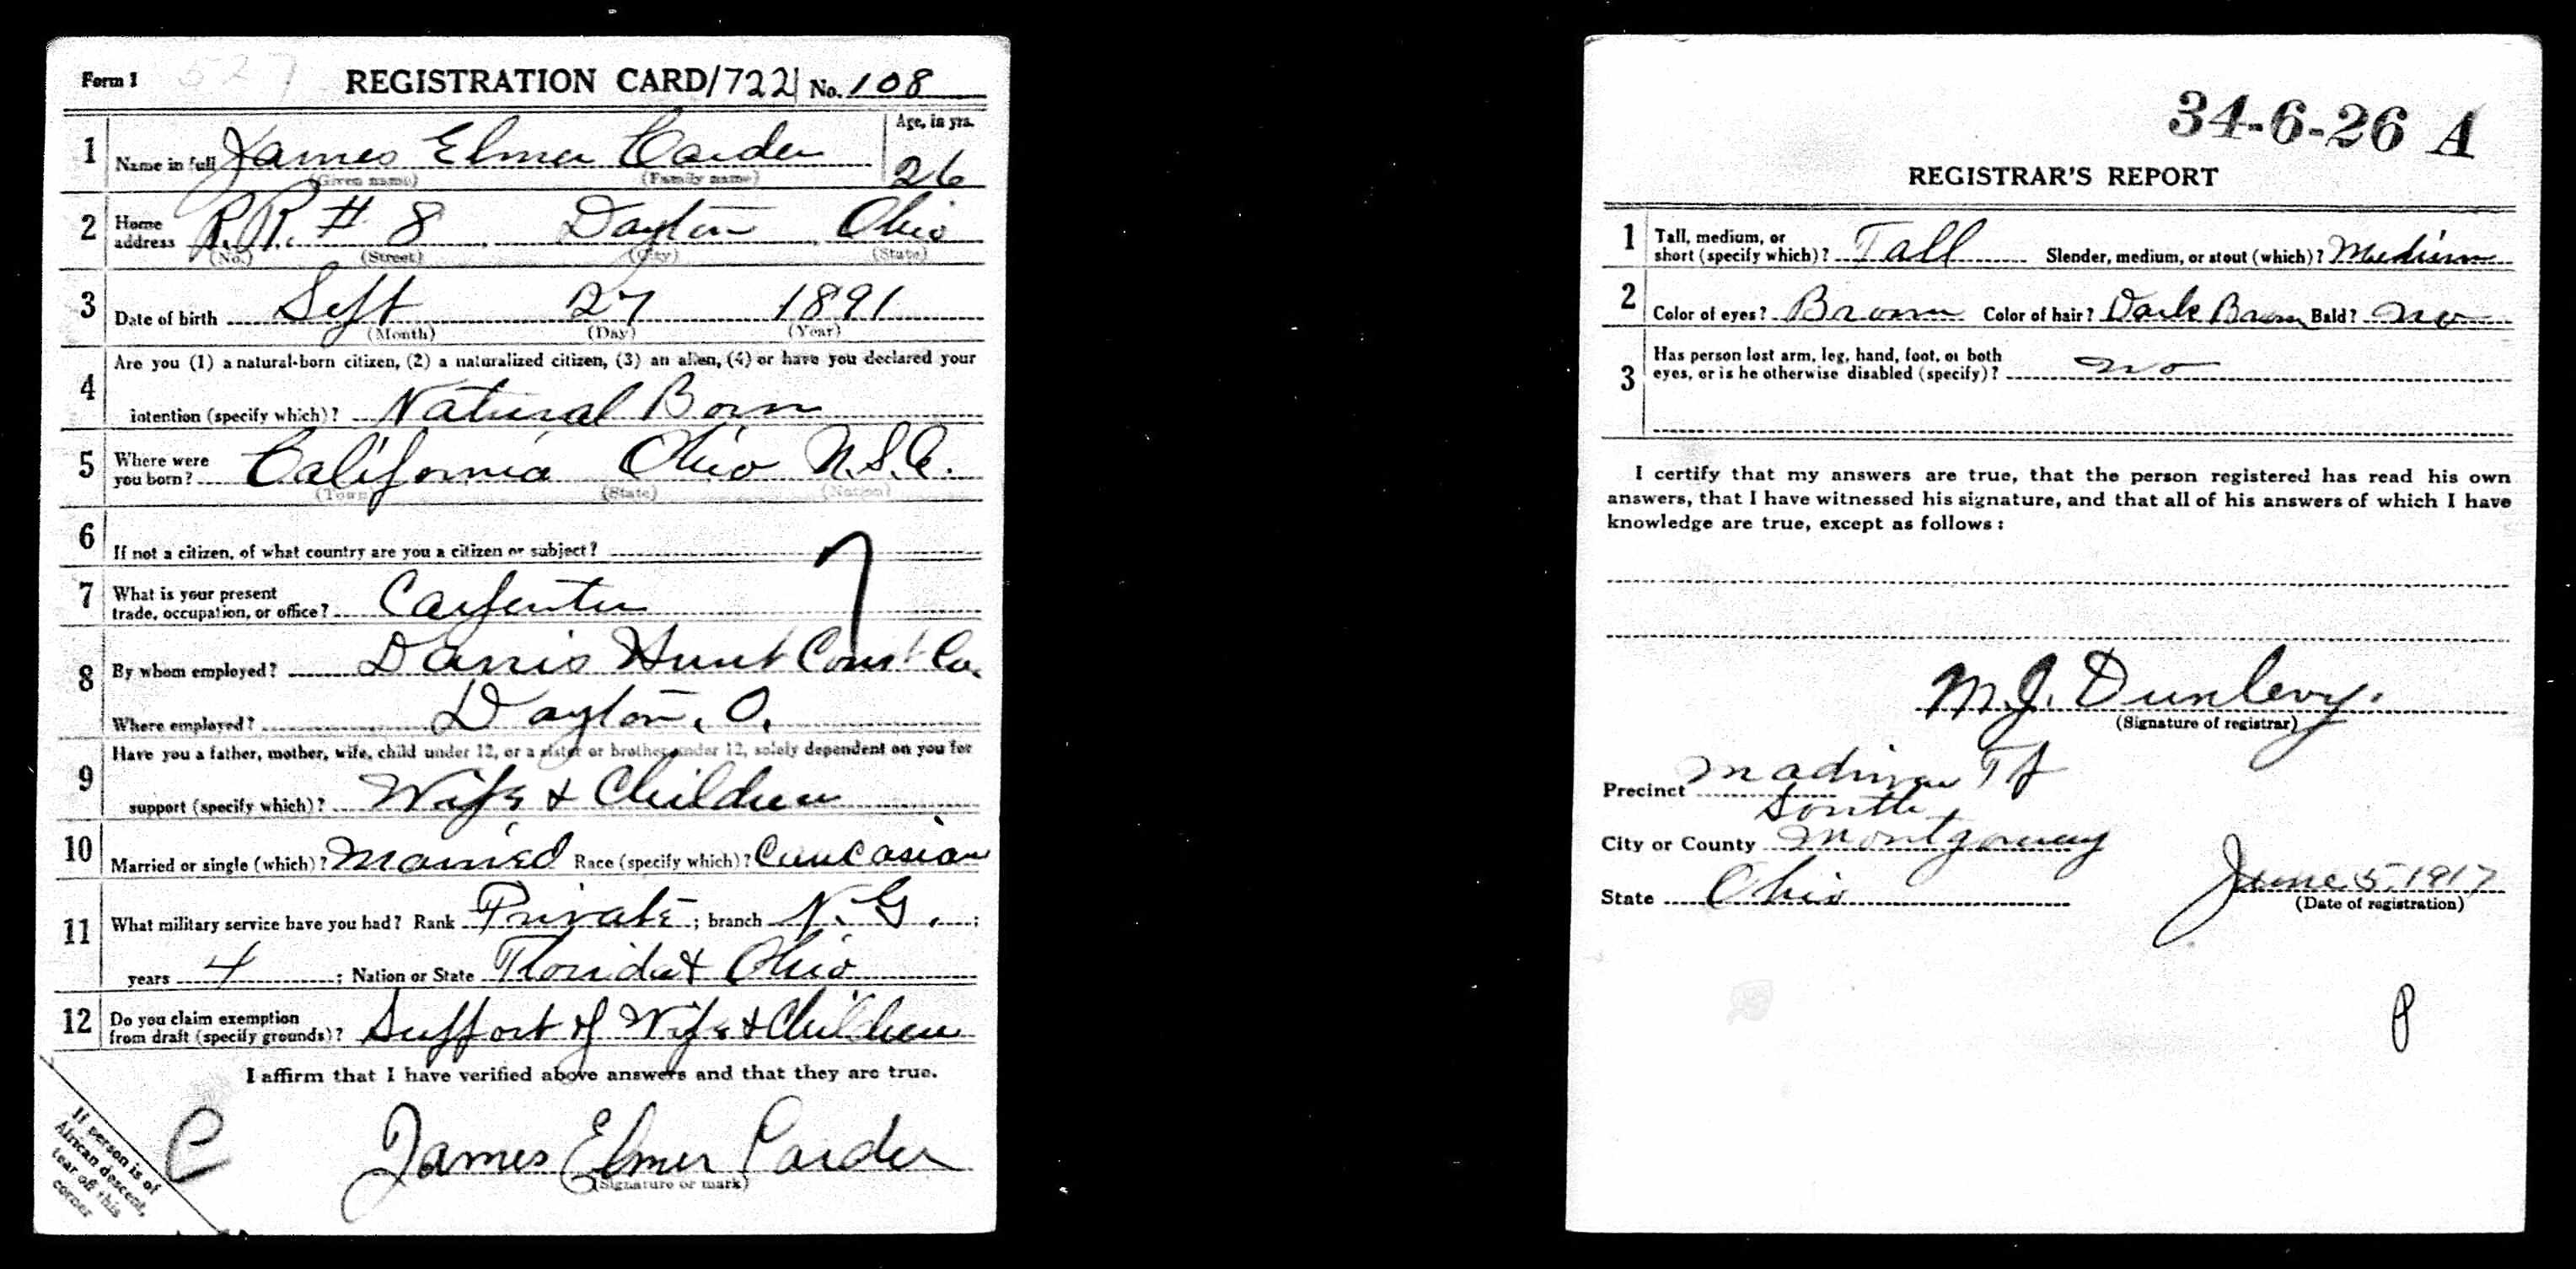 Form 1 527 REGISTRATION CARD/722 No. 108
1 Name in full James Elmer Carder Age, in yrs.
(Given name) (Family name) 26
2 Home address R.R. # 8 Dayton Ohio
(No.) (Street) (City) (State)
3 Date of birth Sept 27 1891
(Month) (Day) (Year)
4 Are you (1) a natural-born citizen, (2) a naturalized citizen, (3) an alien, (4) or have you declared your
intention (specify which)? Natural Born
5 Where were you born? California Ohio U.S.A.
(Town) (State) (Nation)
6 If not a citizen, of what country are you a citizen or subject?
7 What is your present
trade, occupation, or office? Carpenter
8 By whom employed? Danis Hunt Const Co.
Where employed? Dayton, O.
9 Have you a father, mother, wife, child under 12, or a sister or brother under 12, solely dependent on you for
support (specify which)? Wife & Children
10 Married or single (which)? Married Race (specify which)? Caucasian
11 What military service have you had? Rank Private ; branch N. G. ;
years 4 ; Nation or State Florida & Ohio
12 Do you claim exemption
from draft (specify grounds)? Support of Wife & Children
I affirm that I have verified above answers and that they are true.
C James Elmer Carder
(Signature or mark)
If person is of
African descent,
tear off this
corner
34-6-26 A
REGISTRAR'S REPORT
1 Tall, medium, or
short (specify which)? Tall Slender, medium, or stout (which)? Medium
2 Color of eyes? Brown Color of hair? Dark Brown Bald? No
3 Has person lost arm, leg, hand, foot, or both
eyes, or is he otherwise disabled (specify)? No
I certify that my answers are true, that the person registered has read his own
answers, that I have witnessed his signature, and that all of his answers of which I have
knowledge are true, except as follows:
M. J. Dunlevy.
(Signature of registrar)
Precinct Madison Tp
South
City or County Montgomery
State Ohio June 5, 1917
(Date of registration)
P